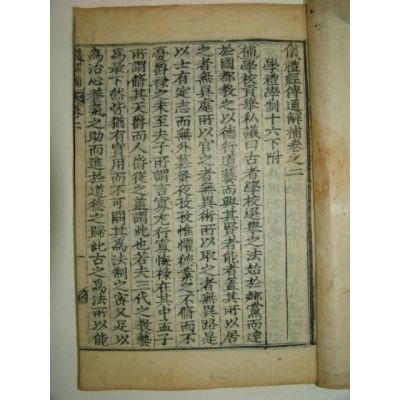 儀禮經傳通解補卷之二
學禮學制十六下附
補學校貢舉私議曰古者學校選舉之法始於鄕黨而達
於國都教之以德行道藝而興其賢者能者蓋其所以居
之者無異處所以官之者無異術所以取之者無異路是
以士有定志而無外慕蚤夜孜孜惟懼德業之不脩而不
憂爵祿之未至夫子所謂言寡尤行寡悔祿在其中孟子
所謂脩其天爵而人爵從之盖謂此也若夫三代之教藝
爲最下然皆猶有實用而不可闕其爲法制之密又足以
爲治心養氣之助而進於道德之歸此古之爲法所以能
儀解補 卷二